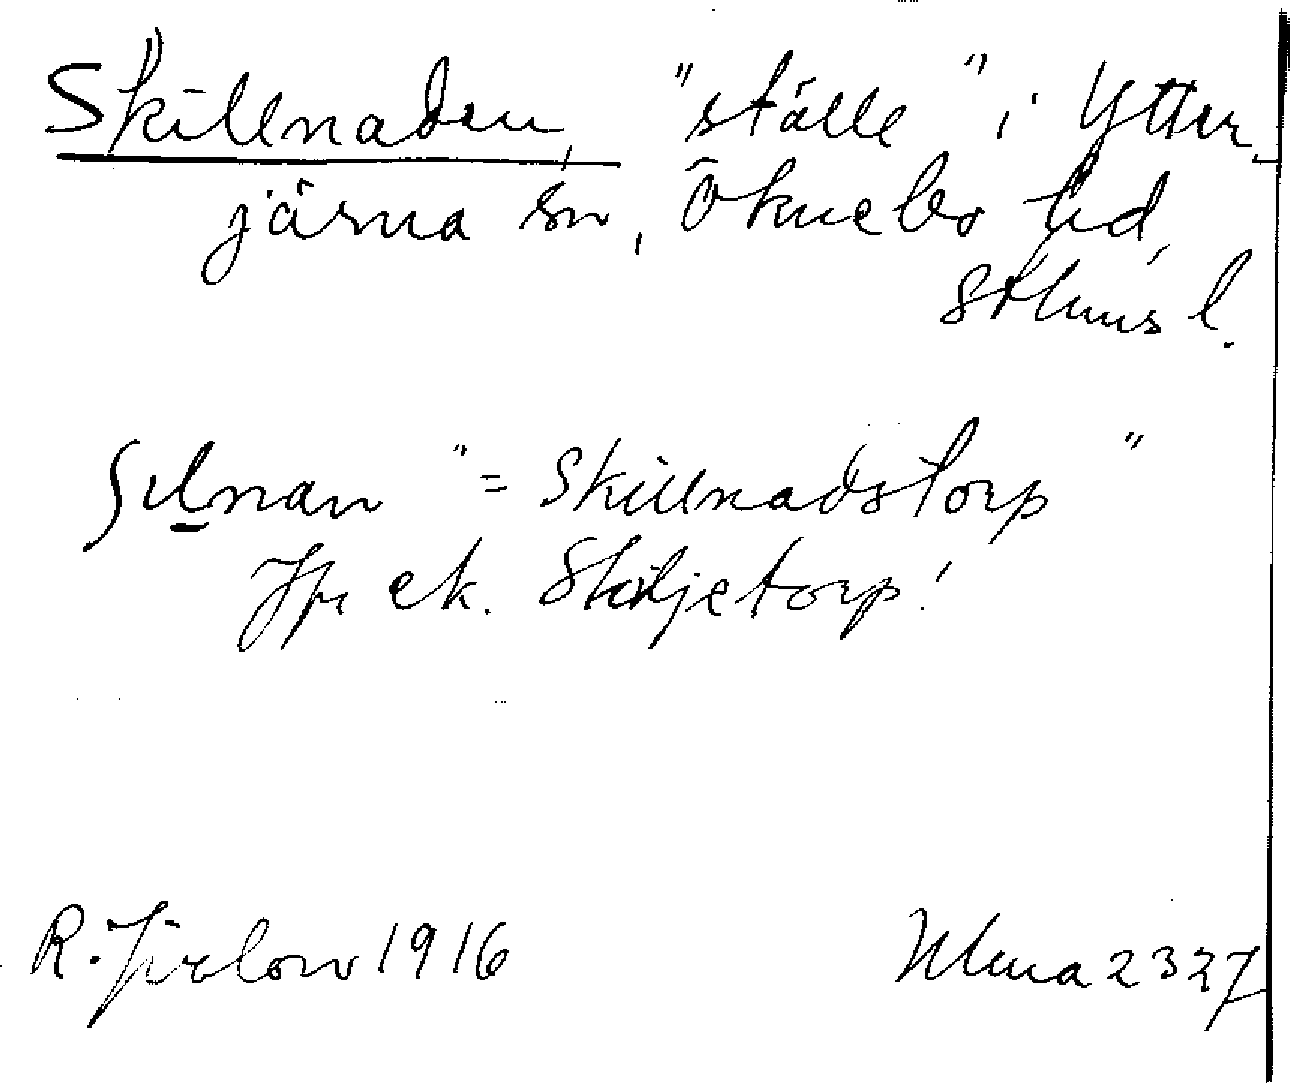 Skillnaden, "ställe" i Ytter-
järna sn, Öknebo hd,
Sthms l.
ʃɩlnan "= Skillnadstorp"
Jfr ek. Sköljetorp!
R. Jirlow 1916 Ulma 2327